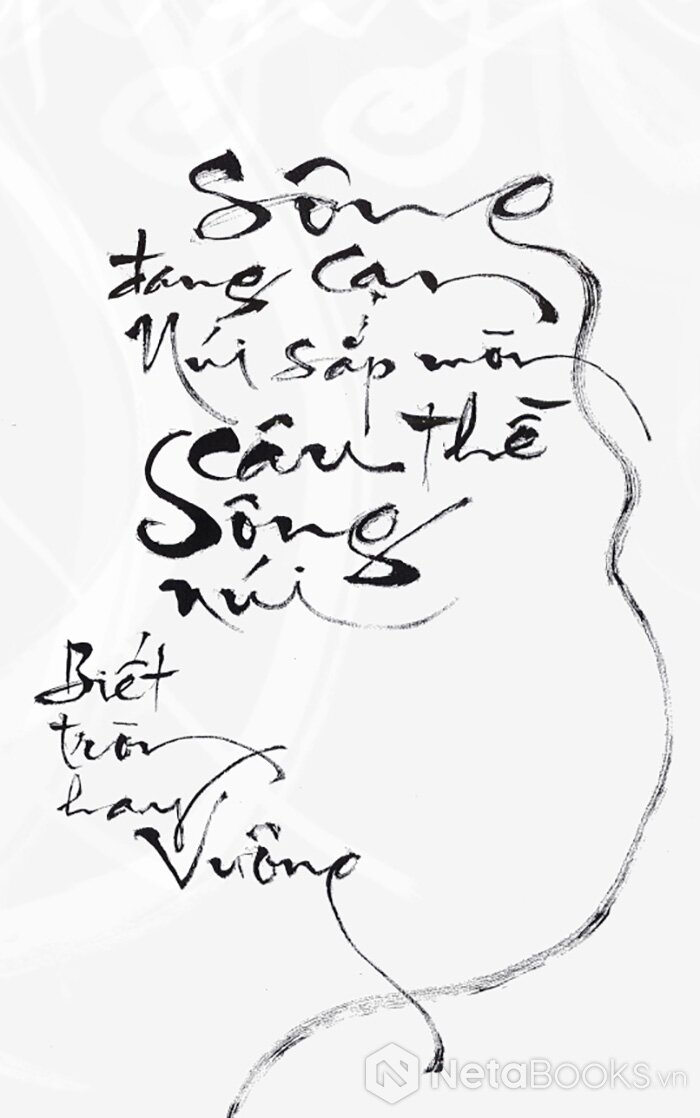 Sông
đang cạn
Núi sắp mòn
câu thề
Sông
núi
Biết
tròn
hay
Vuông
NetaBooks.vn